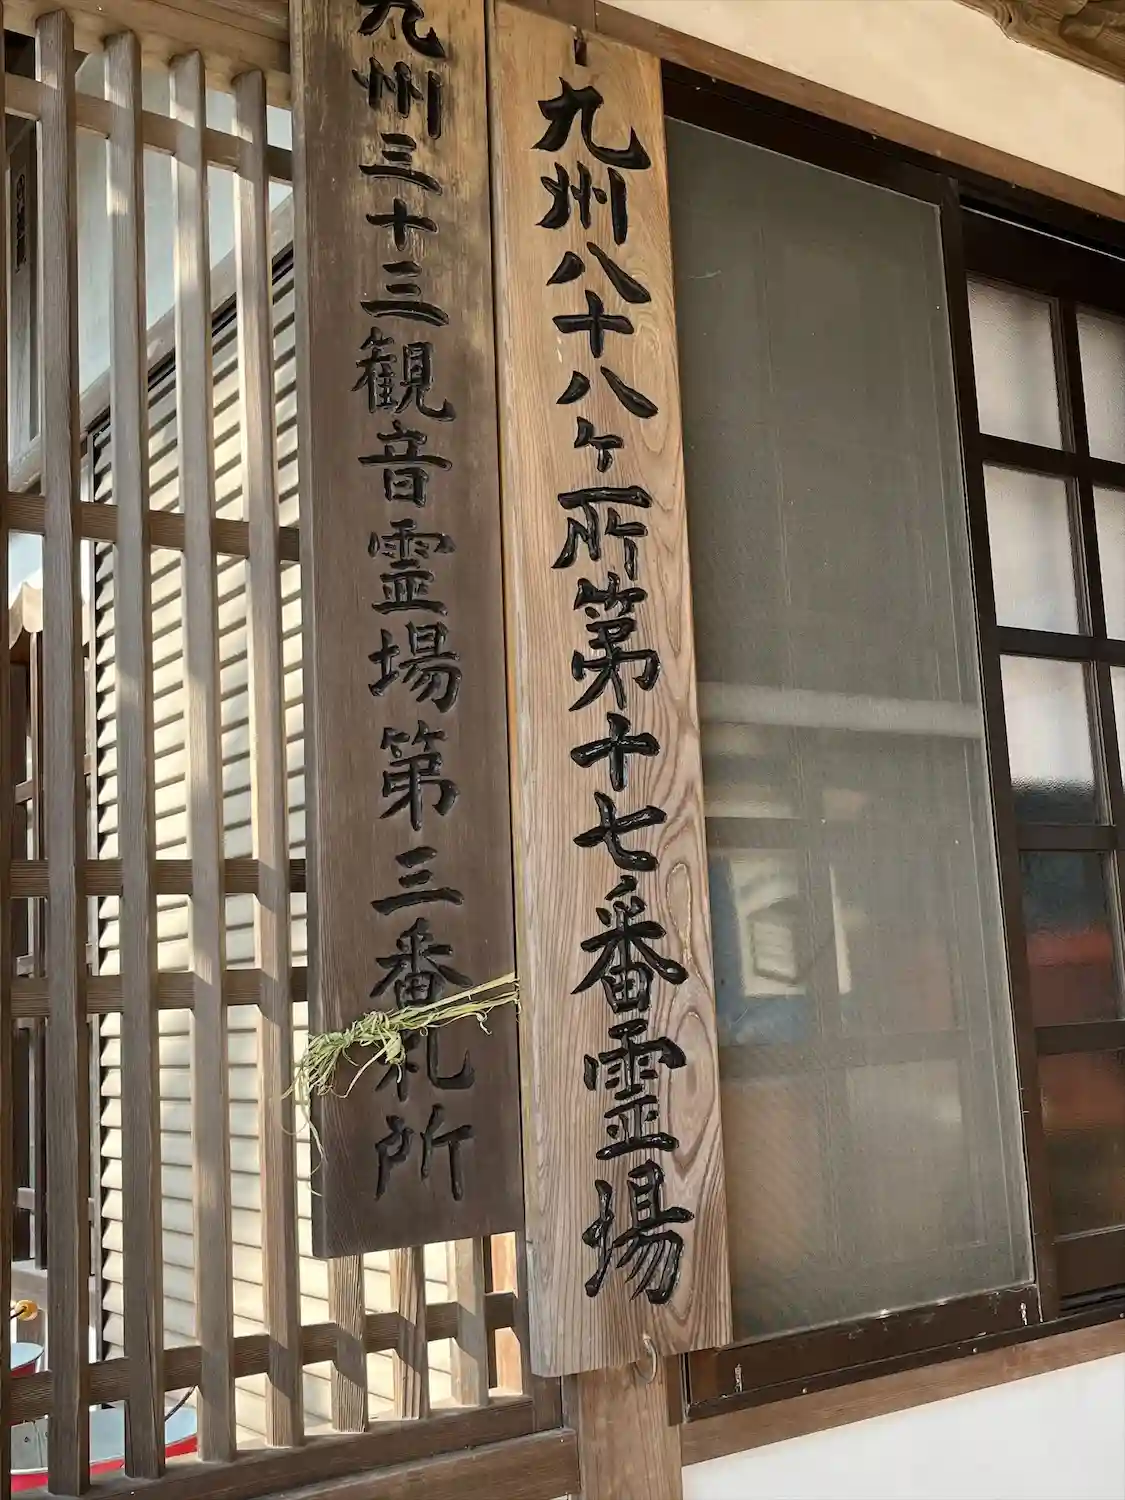 九州八十八ヶ所第十七番霊場
九州三十三観音霊場第三番札所